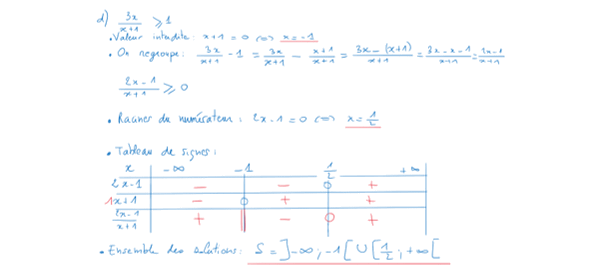 d) 3x/(x+1) ⩾ 1
• Valeur interdite : x+1 = 0 ⇔ x = -1
• On regroupe : 3x/(x+1) - 1 = 3x/(x+1) - (x+1)/(x+1) = (3x-(x+1))/(x+1) = (3x-x-1)/(x+1) = (2x-1)/(x+1)
(2x-1)/(x+1) ⩾ 0
• Racines du numérateur : 2x-1 = 0 ⇔ x = 1/2
• Tableau de signes :
x -∞ -1 1/2 +∞
2x-1 - - 0 +
1x+1 - 0 + +
(2x-1)/(x+1) + || - 0 +
• Ensemble des solutions : S = ]-∞ ; -1[ ∪ [1/2 ; +∞[